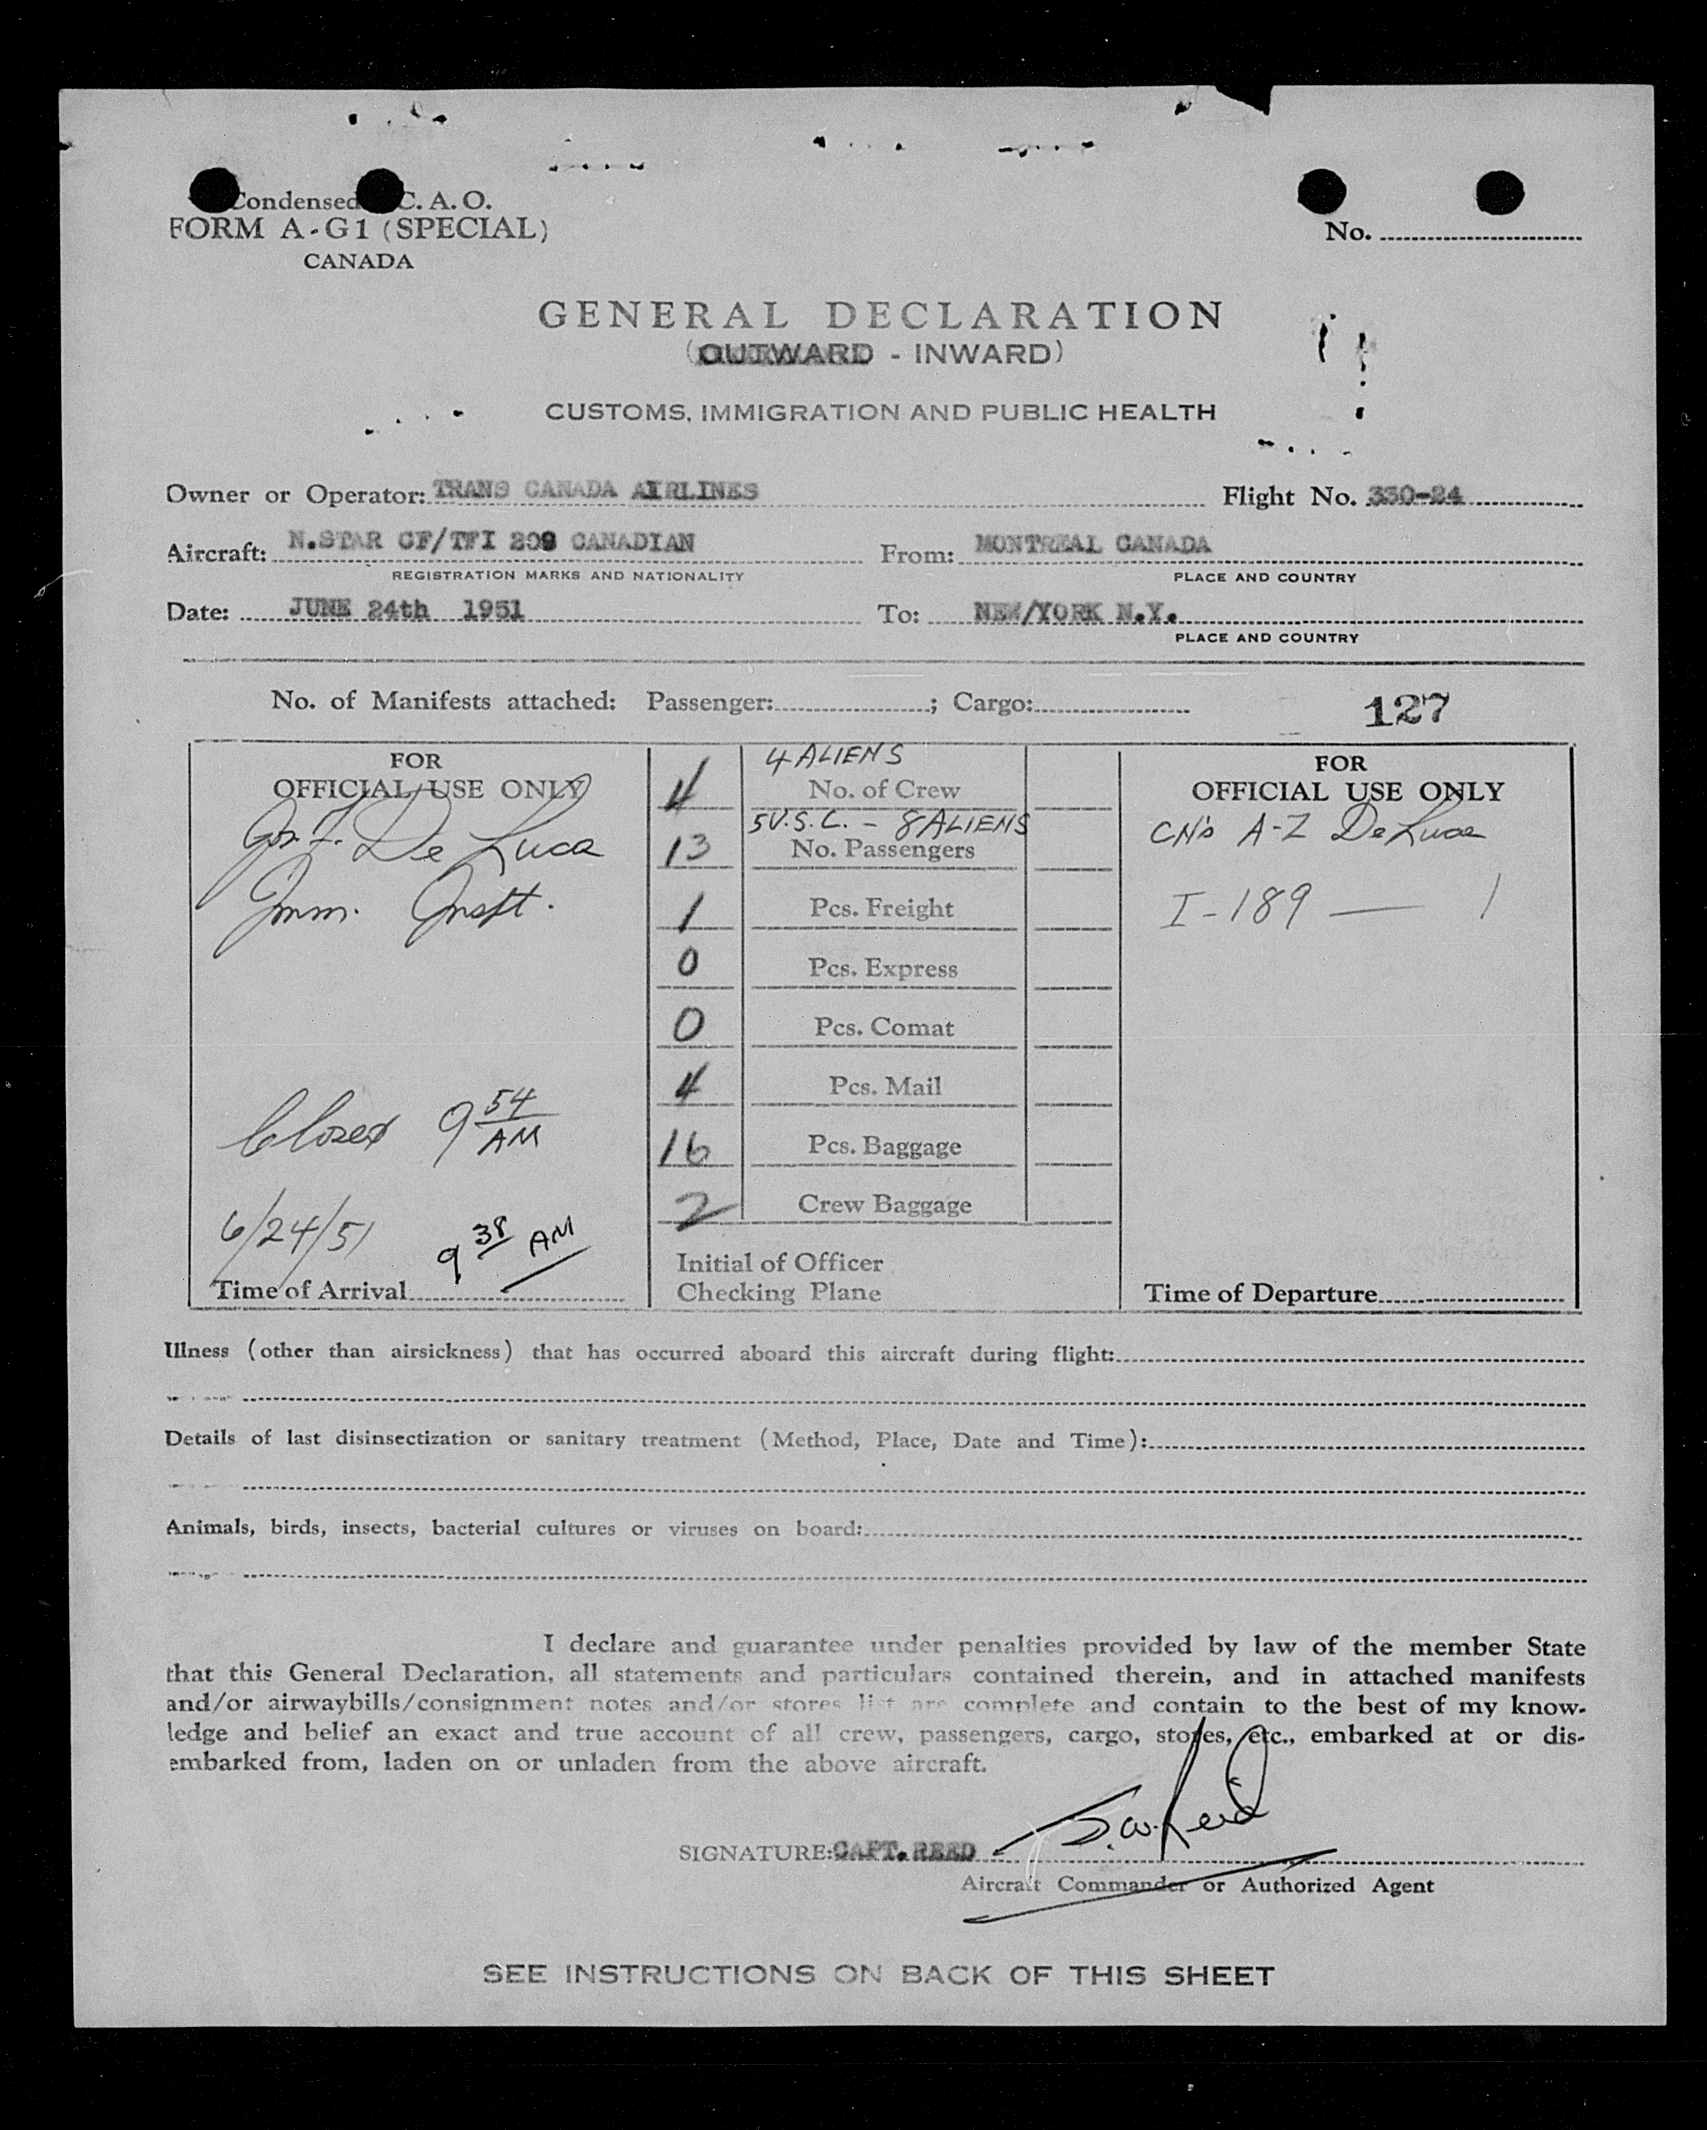 Condensed C. A. O.
FORM A-G1 (SPECIAL)
CANADA
No.
GENERAL DECLARATION
(OUTWARD - INWARD)
CUSTOMS, IMMIGRATION AND PUBLIC HEALTH
Owner or Operator: TRANS CANADA AIRLINES Flight No. 330-24
Aircraft: N.STAR CF/TFI 209 CANADIAN From: MONTREAL CANADA
REGISTRATION MARKS AND NATIONALITY PLACE AND COUNTRY
Date: JUNE 24th 1951 To: NEW/YORK N.Y.
PLACE AND COUNTRY
No. of Manifests attached: Passenger: ; Cargo: 127
FOR
OFFICIAL USE ONLY
Jos. F. De Luca
Imm. Inspt.
Closed 9 54 AM
6/24/51 9 38 AM
Time of Arrival
4 ALIENS
4 No. of Crew
5 U.S.C. - 8 ALIENS
13 No. Passengers
1 Pcs. Freight
0 Pcs. Express
0 Pcs. Comat
4 Pcs. Mail
16 Pcs. Baggage
2 Crew Baggage
Initial of Officer
Checking Plane
FOR
OFFICIAL USE ONLY
CN's A-Z De Luca
I-189 — 1
Time of Departure
Illness (other than airsickness) that has occurred aboard this aircraft during flight:
Details of last disinsectization or sanitary treatment (Method, Place, Date and Time):
Animals, birds, insects, bacterial cultures or viruses on board:
I declare and guarantee under penalties provided by law of the member State
that this General Declaration, all statements and particulars contained therein, and in attached manifests
and/or airwaybills/consignment notes and/or stores list are complete and contain to the best of my know-
ledge and belief an exact and true account of all crew, passengers, cargo, stores, etc., embarked at or dis-
embarked from, laden on or unladen from the above aircraft.
SIGNATURE: CAPT. REED S.W. Reid
Aircraft Commander or Authorized Agent
SEE INSTRUCTIONS ON BACK OF THIS SHEET